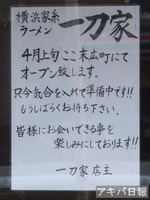 横浜家系
ラーメン 一刀家
4月上旬ここ末広町にて
オープン致します。
只今気合を入れて準備中です!!
もうしばらくお待ち下さい。
皆様にお会いできる事を
楽しみにしております!!
一刀家 店主
アキバ日報